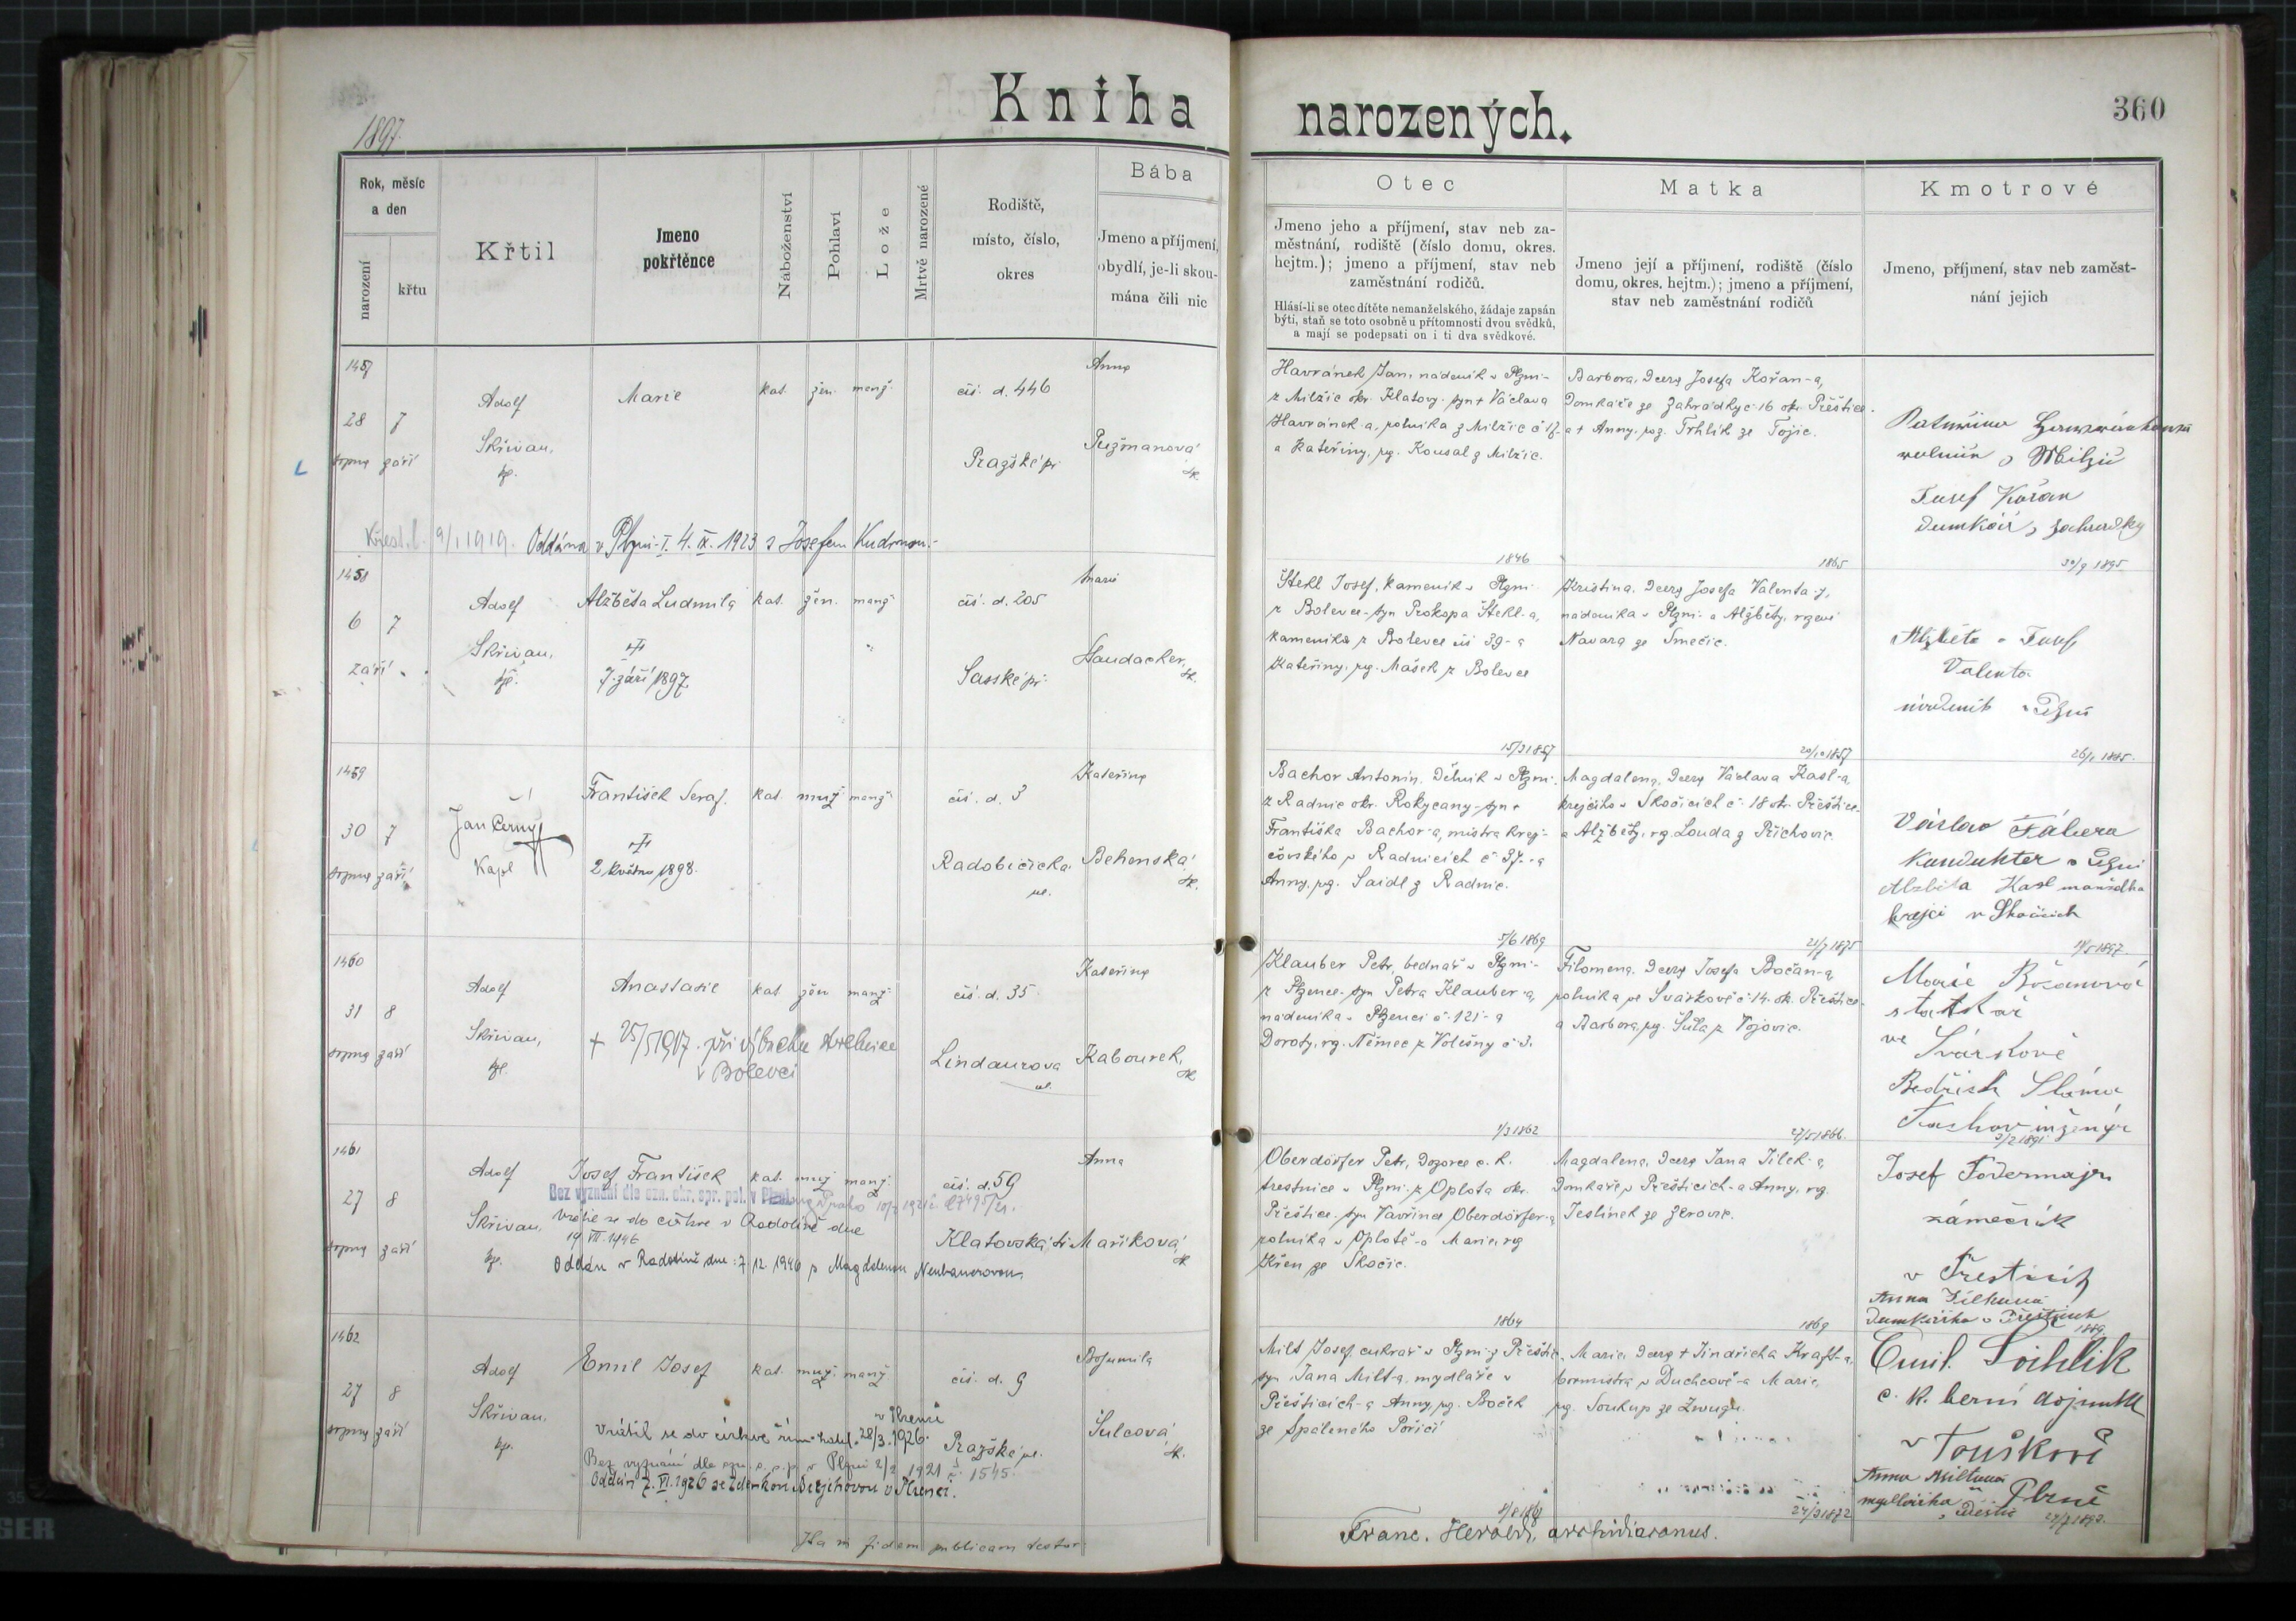 Kniha narozených.
360
1897
Rok, měsíc a den
narození
křtu
Křtil
Jmeno pokřtěnce
Náboženství
Pohlaví
Lože
Mrtvě narozené
Rodiště, místo, číslo, okres
Bába
Jmeno a příjmení, obydlí, je-li skoumána čili nic
Otec
Jmeno jeho a příjmení, stav neb za-
městnání, rodiště (číslo domu, okres.
hejtm.); jmeno a příjmení, stav neb
zaměstnání rodičů.
Hlásí-li se otec dítěte nemanželského, žádaje zapsán
býti, staň se toto osobně u přítomnosti dvou svědků,
a mají se podepsati on i ti dva svědkové.
Matka
Jmeno její a příjmení, rodiště (číslo
domu, okres. hejtm.); jmeno a příjmení,
stav neb zaměstnání rodičů
Kmotrové
Jmeno, příjmení, stav neb zaměst-
nání jejich
1457
28 7
srpna září
Adolf
Skřivan,
kp.
Marie
kat. žen. manž.
čís. d. 446
Pražské př.
Anna
Pužmanová
zk.
Havránek Jan, nádeník v Plzni-
z Milčic okr. Klatovy. syn + Václava
Havránek-a, rolníka z Milčic č 17-
a Kateřiny, roz. Kousal z Milčic.
Barbora, dcera Josefa Kořan-a,
Domkáře ze Zahrádky č 16 okr. Přeštice
a + Anny, roz. Trhlík ze Tojic.
Josef Kořan
domkář z Zahrádky
Křest. l. 9/1 1919. Oddána v Plzni-I. 4. IX. 1923 s Josefem
1846
1865
30/9 1895
1458
6 7
září
Adolf
Skřivan,
kp.
Alžběta Ludmila
7. září 1897
kat. žen. manž.
čís. d. 205
Sasské př.
Marie
Haudacker,
zk.
Štekl Josef, kameník v Plzni
z Bolevce-syn Prokopa Štekl-a,
kameníka z Bolevce čís 39-a
Kateřiny, roz. Mašek z Bolevce
Kristina, dcera Josefa Valenta-y,
nádeníka v Plzni-a Alžběty, rozené
Navara ze Smečic.
Alžběta a Josef
Valenta
nádeník v Plzni
15/3 1857
20/10 1857
26/1 1885
1459
30 7
srpna září
Jan Černý
Kapl
František Seraf.
2. května 1898.
kat. muž. manž.
čís. d. 3
Radobičická
ul.
Kateřina
Behenská
zk.
Bachor Antonín, Dělník v Plzni-
z Radnic okr. Rokycany-syn +
Františka Bachor-a, mistra krej-
čovského v Radnicích č 37.-a
Anny, roz. Saidl z Radnic.
Magdalena, dcera Václava Kasl-a,
krejčího v Skočicích č. 18 okr. Přeštice
a Alžběty, roz. Louda z Příchovic.
Václav Fábera
Kondukter v Plzni
Alžběta Kasl manželka
krejčí v Skočicích
5/6 1869
21/7 1875
1460
31 8
srpna září
Adolf
Skřivan,
kp.
Anastasie
+ 25/5 1917. při výbuchu
v Bolevci
kat. žen. manž.
čís. d. 35
Lindaurova
ul.
Kateřina
Kabourek,
zk.
Klauber Petr, bednář v Plzni-
z Plzence-syn Petra Klauber-a,
nádeníka v Plzenci č. 121-a
Doroty, roz. Němec z Volišny č 3.
Filomena, dcera Josefa Bočan-a,
rolníka ve Svárkově č 14. ok. Přeštice-
a Barbora, roz. Šúla z Vojovic.
Marie Bočanová
statkář
ve
Svárkově
Bedřich Sláma
inženýr
1/3 1862
27/5 1866
3/2 1891
1461
27 8
srpna září
Adolf
Skřivan,
kp.
Josef František
Bez vyznání dle ozn. okr. spr. pol. v
Vrátil se do církve v Radotíně dne
19. VII. 1946
Oddán v Radotíně dne: 7. 12. 1946 s Magdalenou Neubauerovou.
kat. muž manž.
čís. d. 59
Klatovská tř.
Anna
Maříková
zk.
Oberdörfer Petr, Dozorce c. k.
trestnice v Plzni-z Oplota okr.
Přeštice-syn Vavřince Oberdörfer-a
rolníka v Oplotě-a Marie, roz
Křen ze Skočic.
Magdalena, dcera Jana Jílek-a,
Domkaře v Přešticích-a Anny, roz.
Jeslínek ze Žerovic.
Josef Födermajer
zámečník
v Přešticích
Anna Jílková
Domkářka v Přešticích
1864
1869
1889
1462
27 8
srpna září
Adolf
Skřivan,
kp.
Emil Josef
Vrátil se do církve řím-katol. 28/3. 1926. v Plzni
Bez vyznání dle ozn. o. s. p. v Plzni 2/2 1921 č. 1545.
Oddán 7. VI. 1926 se Zdenkou v Plzenci.
kat. muž. manž
čís. d. 9
Pražská ul.
Bohumila
Šulcová
zk.
Milt Josef, cukrař v Plzni-z Přeštic-
syn Jana Milt-a, mydláře v
Přešticích-a Anny, roz. Boček
ze Spáleného Poříčí
Marie, dcera + Jindřicha Kraft-a,
bormistra v Duchcově-a Marie,
roz. Soukup ze Zwugu.
Emil
c. k. berní adjunkt
v Touškově
Anna Miltová
Plzně
8/8 1868
24/3 1872
24/7 1893
Ita in fidem publicam testor
Franc. Herold, archidiaconus.